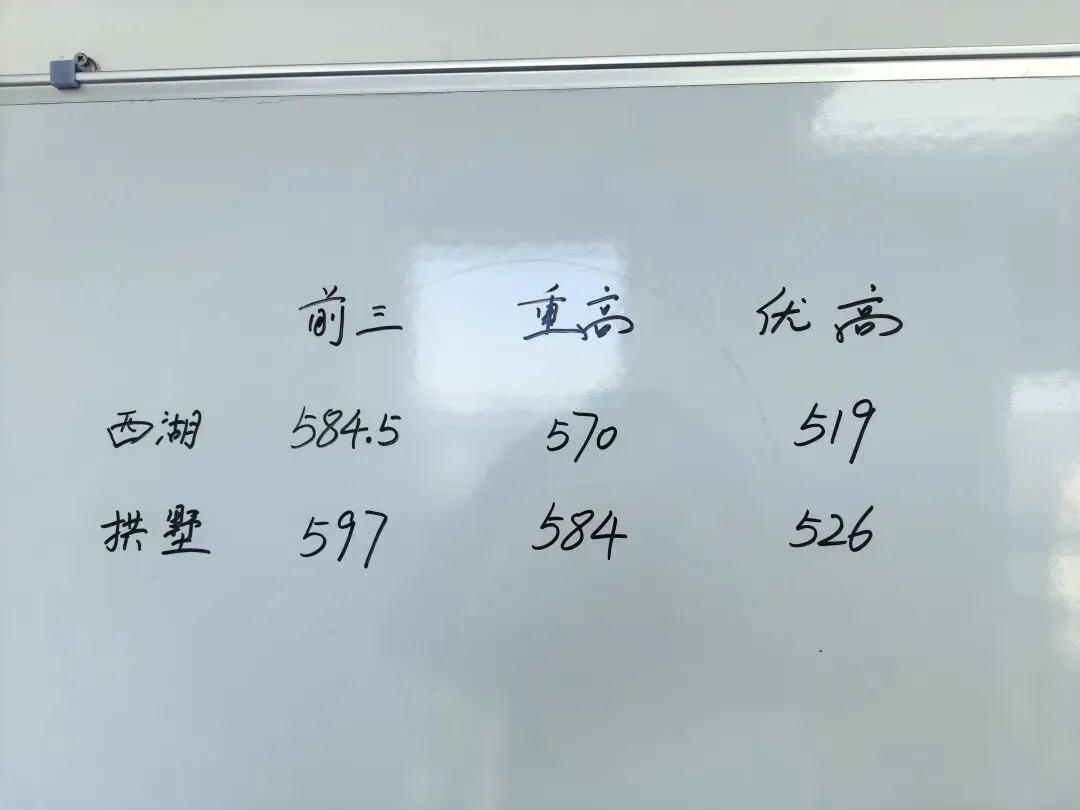 前三 重高 优高
西湖 584.5 570 519
拱墅 597 584 526